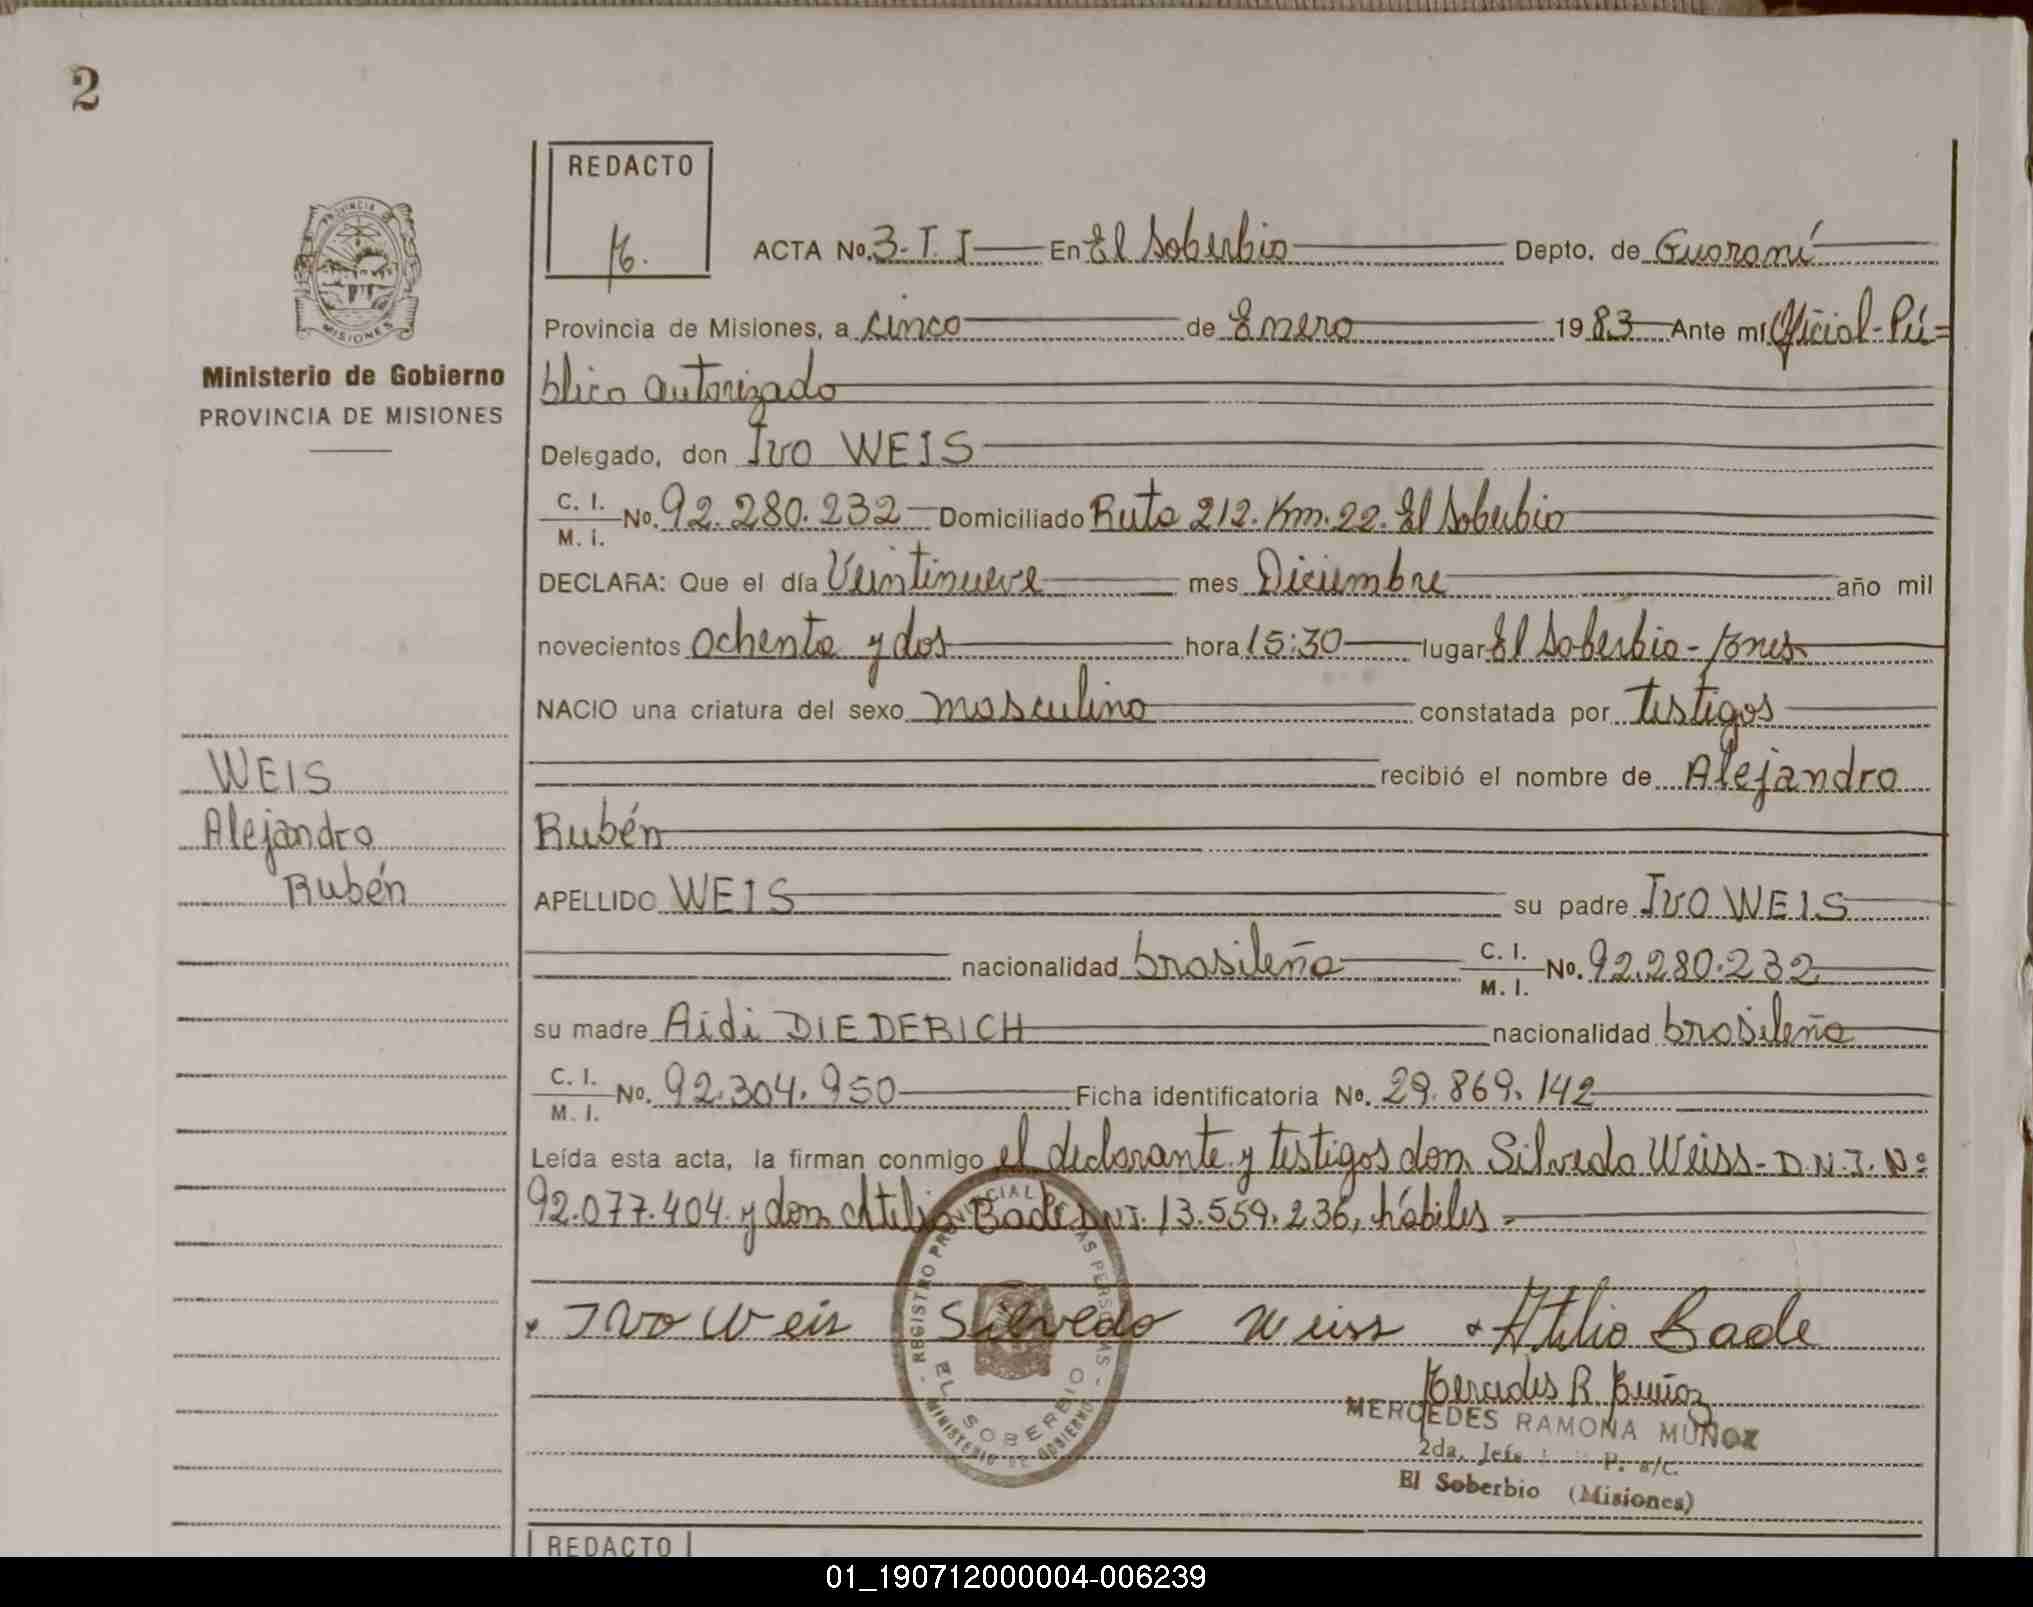 2
REDACTO
ACTA No. 3-T.I En El Soberbio Depto. de Guaraní
Provincia de Misiones, a cinco de Enero 1983 Ante mí Oficial Pú=
blico autorizado
Ministerio de Gobierno
PROVINCIA DE MISIONES
PROVINCIA DE
MISIONES
Delegado, don Ivo WEIS
C. I.
M. I. No. 92.280.232 Domiciliado Ruta 212. Km. 22. El Soberbio
DECLARA: Que el día Veintinueve mes Diciembre año mil
novecientos ochenta y dos hora 15:30 lugar El Soberbio-
NACIO una criatura del sexo masculino constatada por testigos
recibió el nombre de Alejandro
Rubén
WEIS
Alejandro
Rubén
APELLIDO WEIS su padre Ivo WEIS
nacionalidad brasileña C. I.
M. I. No. 92.280.232
su madre Aidi DIEDERICH nacionalidad brasileña
C. I.
M. I. No. 92.304.950 Ficha identificatoria No. 29.869.142
Leída esta acta, la firman conmigo el declarante y testigos don Silvedo Weiss-D.N.I. Nº
92.077.404 y don Atilio Bade DNI. 13.559.236, hábiles.-
Ivo Weis Silvedo Weiss Atilio Bade
Mercedes R Muñoz
MERCEDES RAMONA MUÑOZ
2da. Jefe P. a/c.
El Soberbio (Misiones)
REGISTRO PROVINCIAL DE LAS PERSONAS
EL SOBERBIO
MINISTERIO DE GOBIERNO
REDACTO
01_190712000004-006239